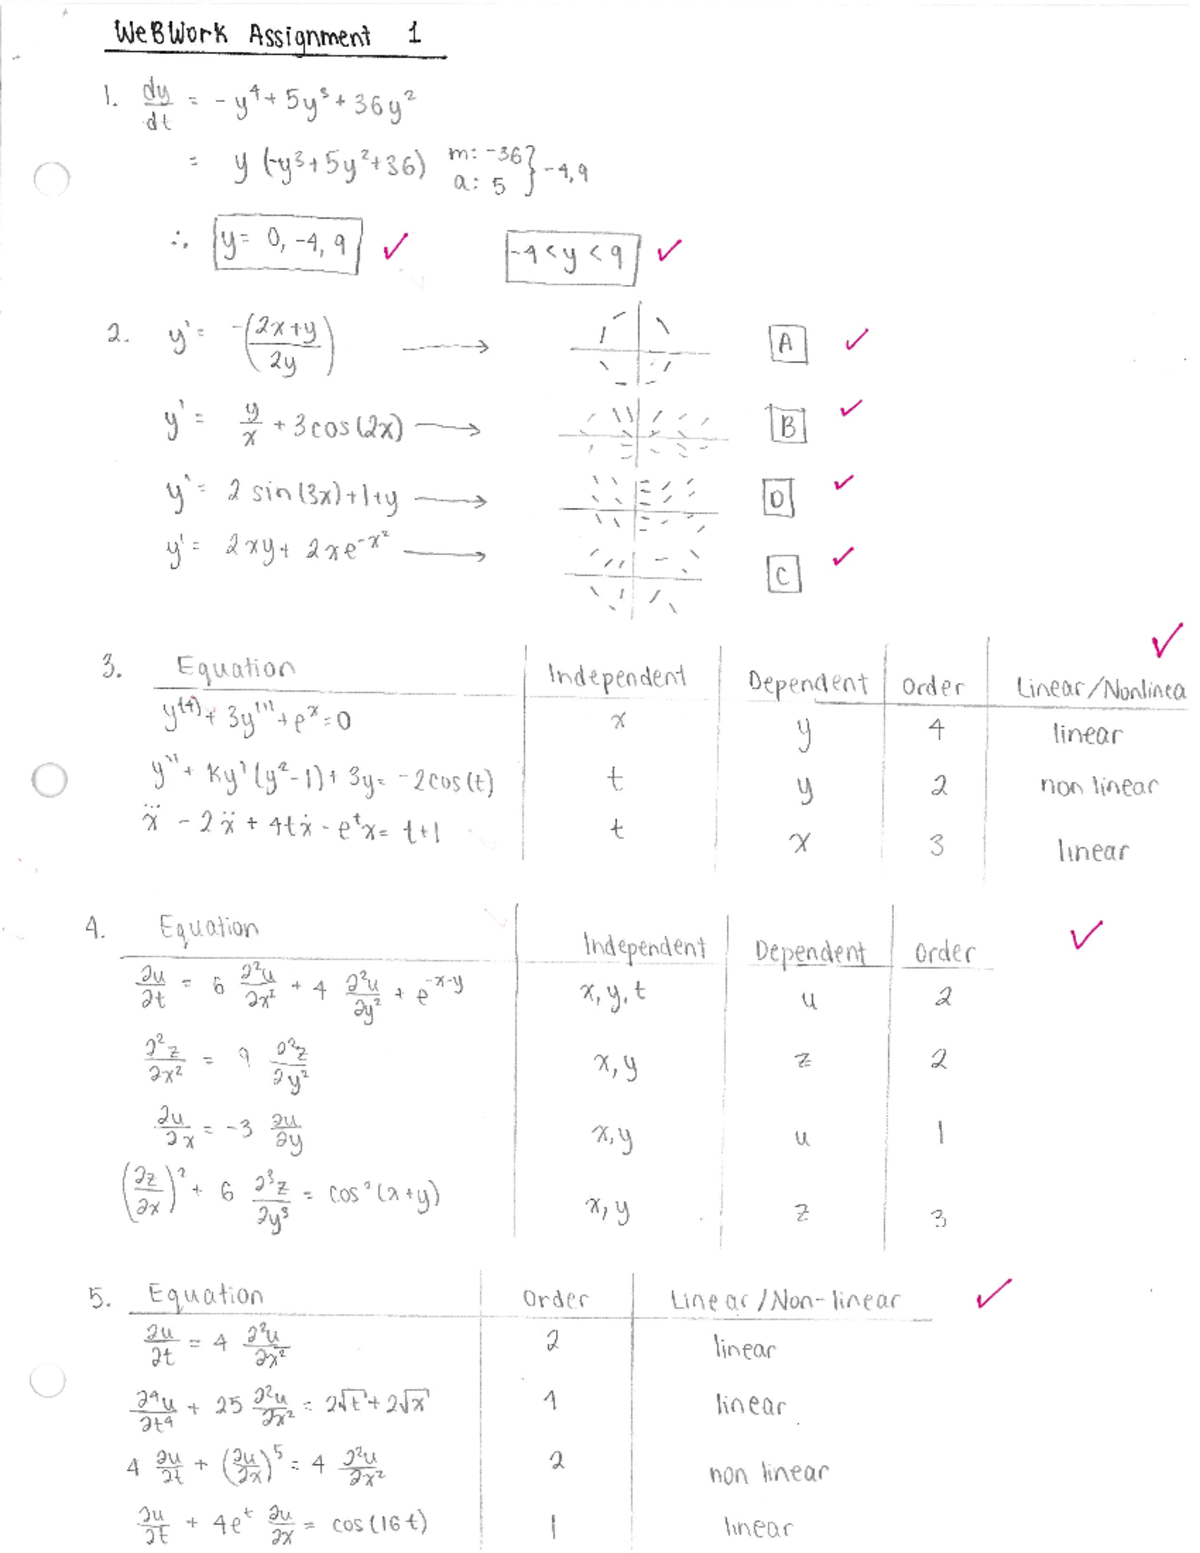 WeBWork Assignment 1
1. dy/dt = -y⁴ + 5y³ + 36y²
= y (-y³+5y²+36) m: -36 a: 5 } -4, 9
∴ y= 0, -4, 9 ✓ -4 < y < 9 ✓
2. y' = -(2x+y / 2y) → A ✓
y' = y/x + 3cos(2x) → B ✓
y' = 2 sin(3x)+1+y → D ✓
y' = 2xy + 2xe^-x² → C ✓
3. Equation Independent Dependent Order Linear/Nonlinea ✓
y⁽⁴⁾ + 3y''' + e^x = 0 x y 4 linear
y'' + Ky'(y²-1) + 3y = -2cos(t) t y 2 non linear
x⃛ - 2ẍ + 4tẋ - e^t x = t+1 t x 3 linear
4. Equation Independent Dependent Order ✓
∂u/∂t = 6 ∂²u/∂x² + 4 ∂²u/∂y² + e^-x-y x, y, t u 2
∂²z/∂x² = 9 ∂²z/∂y² x, y z 2
∂u/∂x = -3 ∂u/∂y x, y u 1
(∂z/∂x)² + 6 ∂³z/∂y³ = cos²(x+y) x, y z 3
5. Equation Order Linear/Non-linear ✓
∂u/∂t = 4 ∂²u/∂x² 2 linear
∂⁴u/∂t⁴ + 25 ∂²u/∂x² = 2√t + 2√x 4 linear
4 ∂u/∂t + (∂u/∂x)⁵ = 4 ∂²u/∂x² 2 non linear
∂u/∂t + 4e^t ∂u/∂x = cos(16t) 1 linear